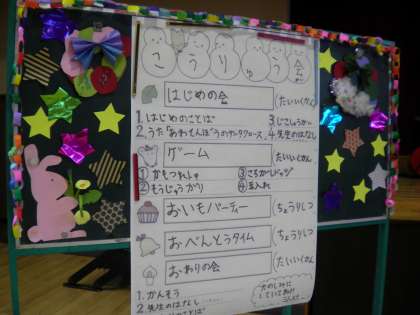 こうりゅう会
はじめの会 (たいいくかん
1. はじめのことば 3. じこしょうかい
2. うた「あわてんぼうのサンタクロース」 4. 先生のはなし
ゲーム (たいいくかん
① かもつれっしゃ ③ ころがしドッジ
② もうじゅうがり ④ 玉入れ
おいもパーティー (ちょうりしつ
おべんとうタイム (ちょうりしつ
おわりの会 (たいいくかん
1. かんそう
2. 先生のはなし
たのしみに
していてね